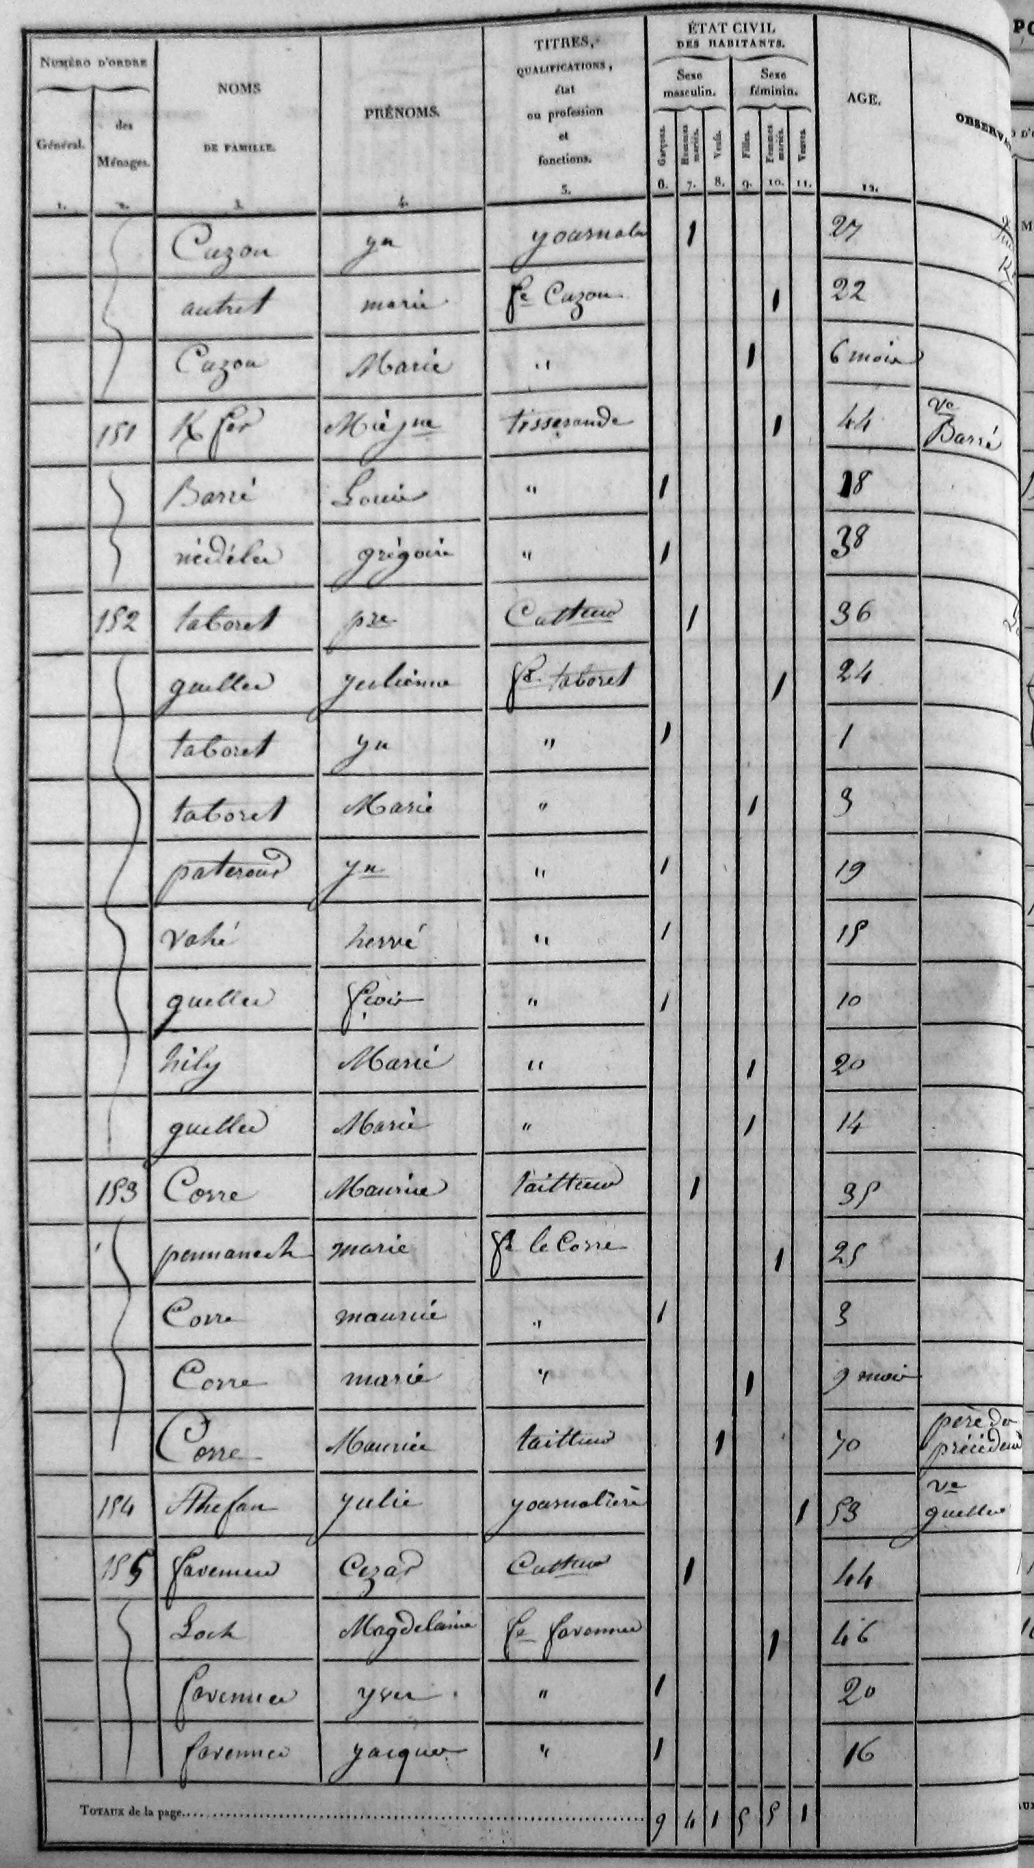 NUMÉRO D'ORDRE
Général.
des Ménages.
NOMS DE FAMILLE.
PRÉNOMS.
TITRES, QUALIFICATIONS, état ou profession et fonctions.
ÉTAT CIVIL DES HABITANTS.
Sexe masculin.
Sexe féminin.
Garçons.
Hommes mariés.
Veufs.
Filles.
Femmes mariées.
Veuves.
AGE.
1. 2. 3. 4. 5. 6. 7. 8. 9. 10. 11. 12.
Cazou yn 1 27
autret marie fe Cazou 1 22
Cazou Marie " 1 6 mois
151 Mie jne tisserande 1 44 ve Barré
Barré Louis " 1 18
nédélec grégoire " 1 38
152 taboret pre Culteur 1 36
quellec yulienne fe taboret 1 24
taboret yn " 1 1
taboret Marie " 1 3
pateroud yn " 1 19
vahé hervé " 1 15
quellec fcois " 1 10
hily Marie " 1 20
quellec Marie " 1 14
153 Corre Maurice tailleur 1 35
pennanech marie fe le Corre 1 25
Corre maurice " 1 3
Corre marie " 1 9 mois
Corre Maurice tailleur 1 70 père du précédent
154 yulie yournalière 1 53 ve quellec
155 favennec Cezar Culteur 1 44
Loch Magdelaine fe favennec 1 46
favennec yves " 1 20
favennec yacques " 1 16
TOTAUX de la page 9 4 1 5 5 1